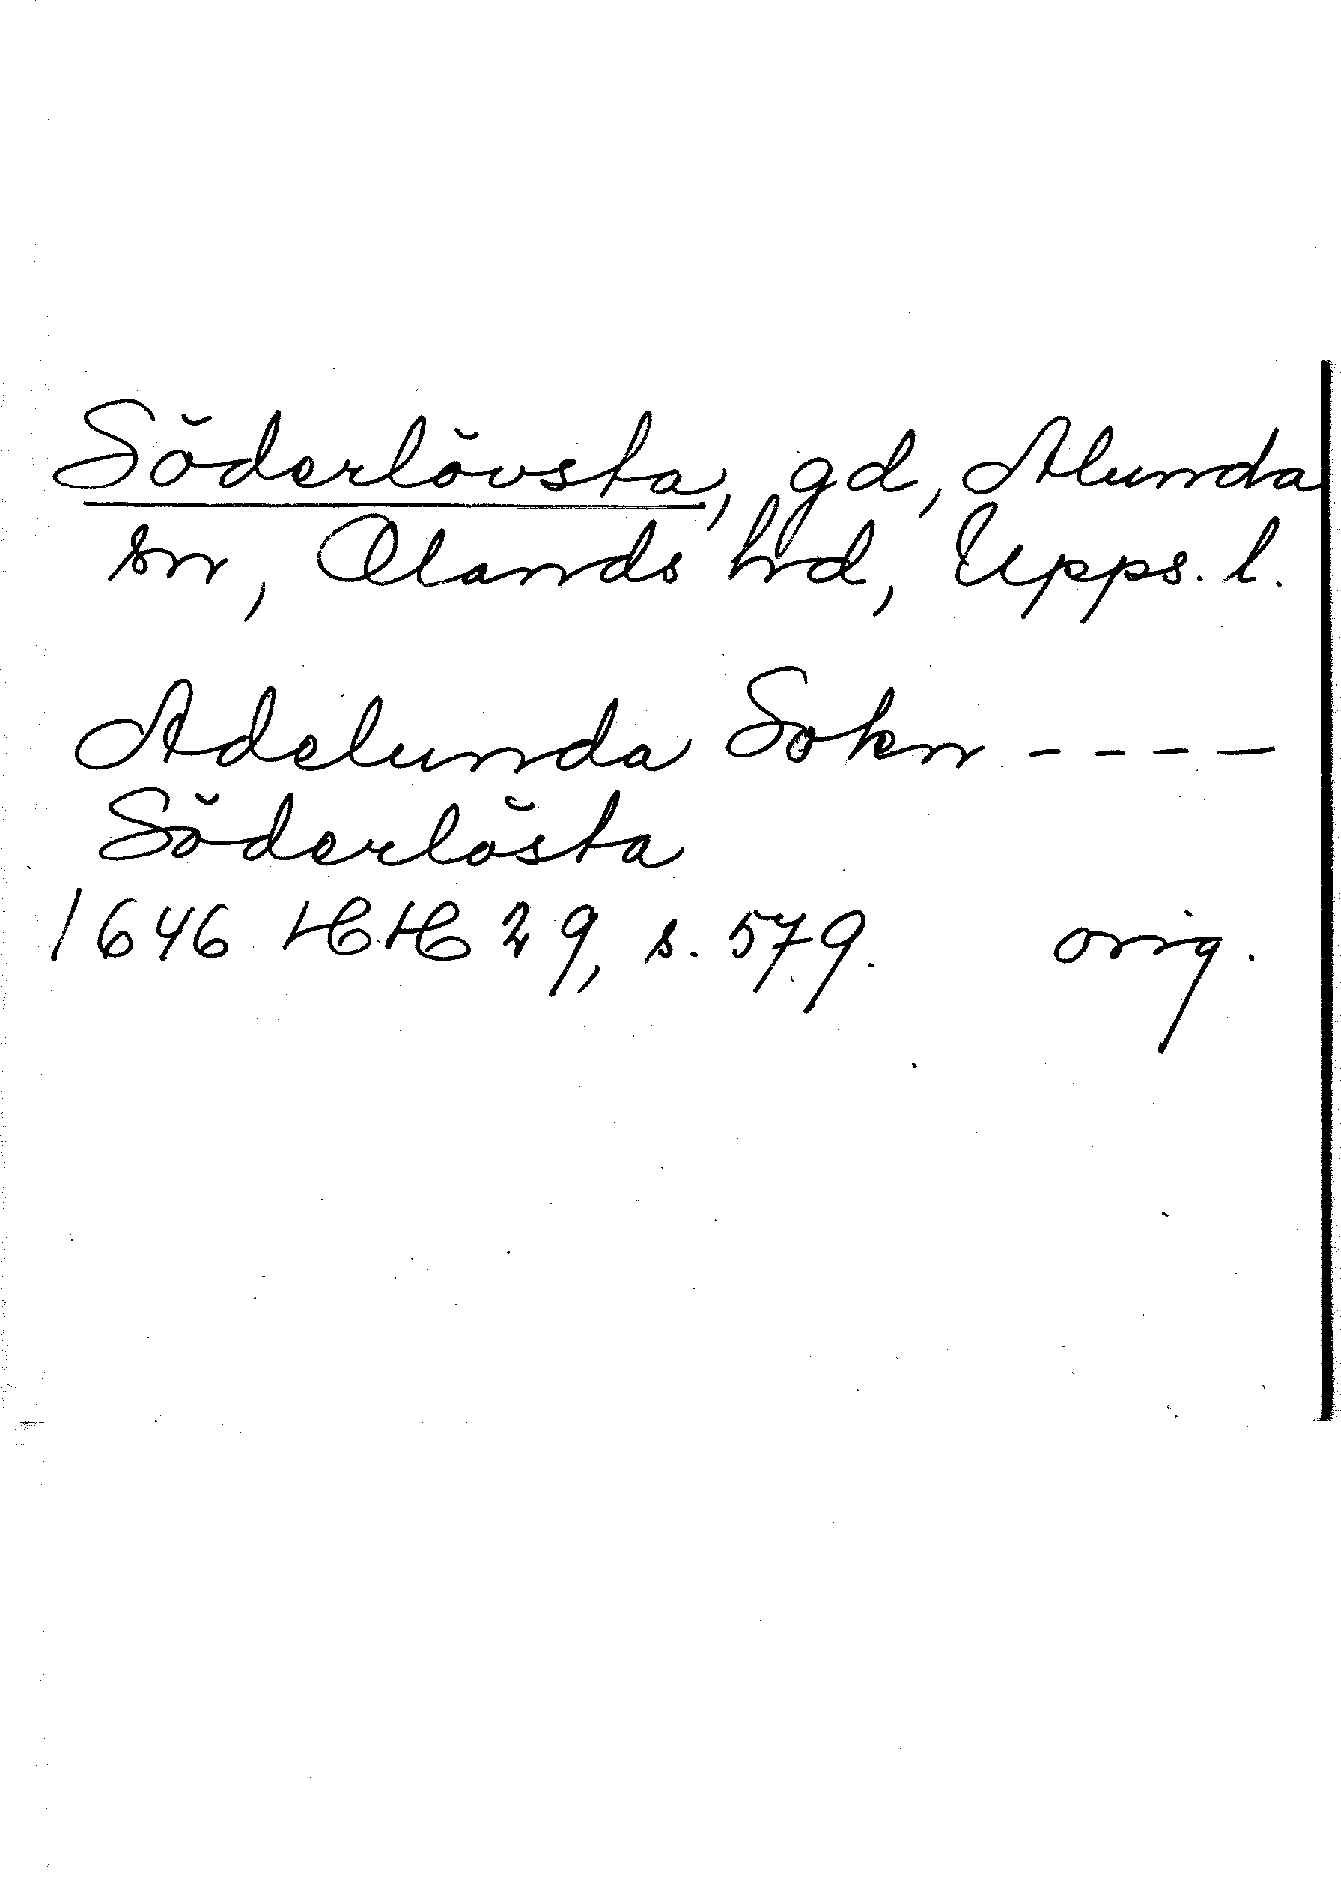 Söderlövsta, gd, Alunda
sn, Olands hrd, Upps. l.
Adelunda Sokn - - - -
Söderlösta
1646 HH 29, s. 579. orig.